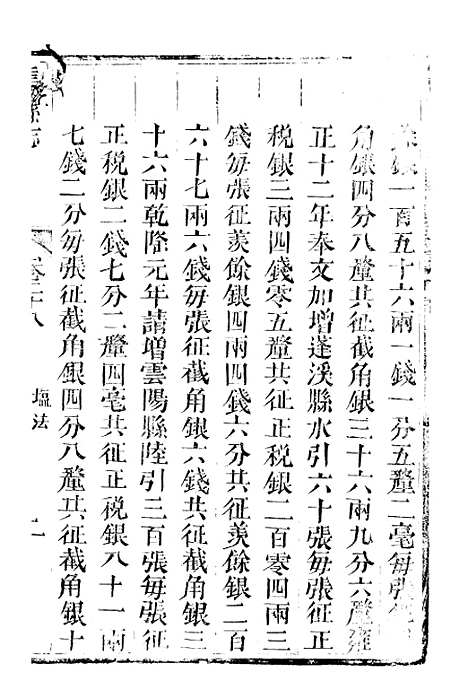 銀一百五十六兩一錢一分五釐二毫每張
角銀四分八釐共征截角銀三十六兩九分六釐雍
正十二年奉文加增蓬溪縣水引六十張每張征正
稅銀三兩四錢零五釐共征正稅銀二百零四兩三
錢每張征羨餘銀四兩四錢六分共征羨餘銀二百
六十七兩六錢每張征截角銀六錢共征截角銀三
十六兩乾隆元年請增雲陽縣陸引三百張每張征
正稅銀二錢七分二釐四毫共征正稅銀八十一兩
七錢二分每張征截角銀四分八釐共征截角銀十
卷二十八
塩法